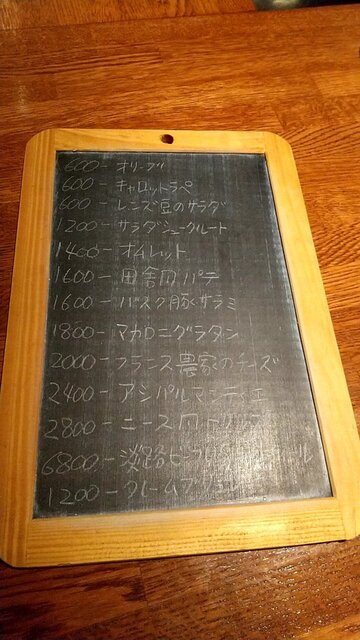 600 - オリーブ
600 - キャロットラペ
600 - レンズ豆のサラダ
1200 - サラダシュークルート
1400 - オムレット
1600 - 田舎風パテ
1600 - バスク豚サラミ
1800 - マカロニグラタン
2000 - フランス農家のチーズ
2400 - アシパルマンティエ
2800 - ニース風
6800 - 淡路ビーフ
1200 - クレームブリュレ